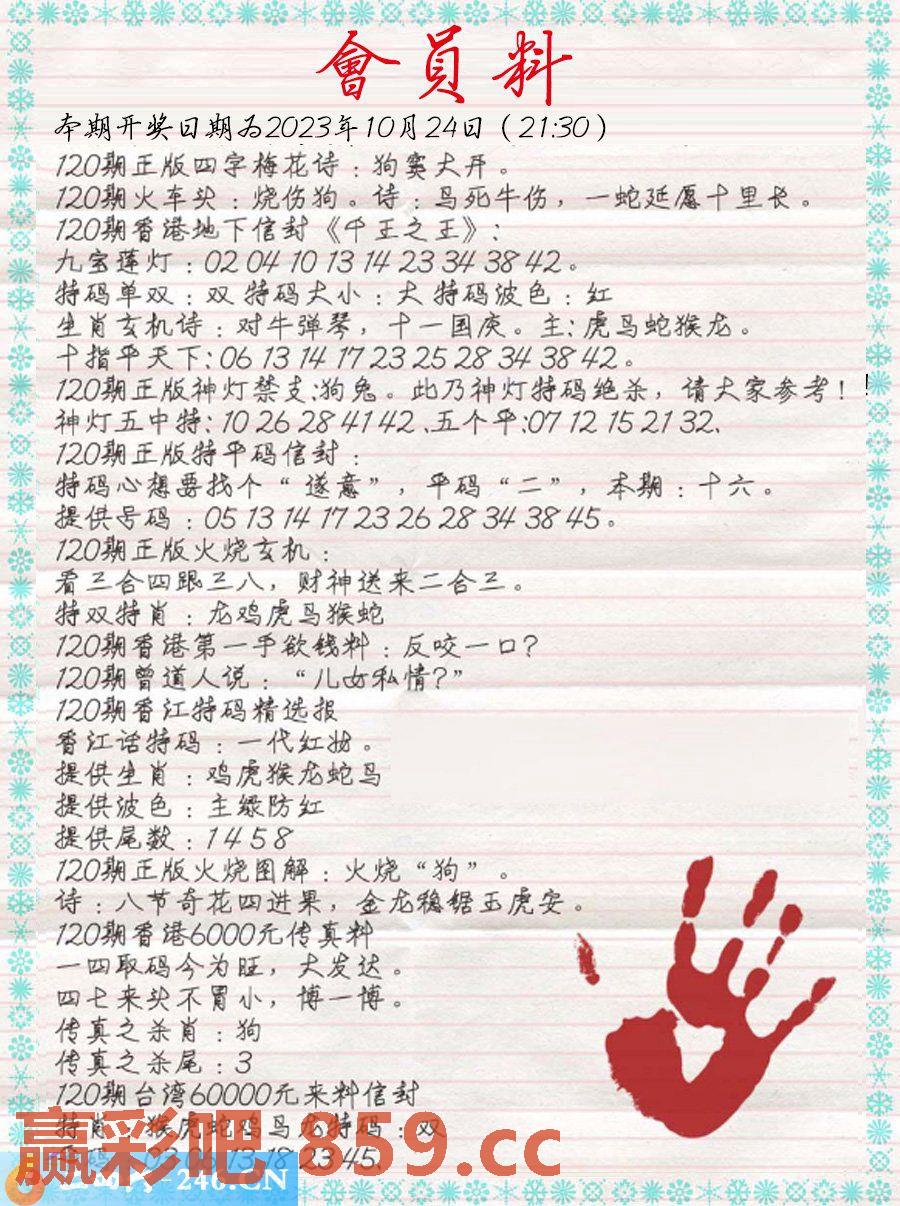 會員料
本期开奖日期为2023年10月24日（21:30）
120期正版四字梅花诗：狗窦大开。
120期火车头：烧伤狗。诗：马死牛伤，一蛇延愿十里长。
120期香港地下信封《千王之王》：
九宝莲灯：02 04 10 13 14 23 34 38 42。
特码单双：双 特码大小：大 特码波色：红
生肖玄机诗：对牛弹琴，十一国庆。主：虎马蛇猴龙。
十指平天下：06 13 14 17 23 25 28 34 38 42。
120期正版神灯禁支:狗兔。此乃神灯特码绝杀，请大家参考！!
神灯五中特：10 26 28 41 42、五个平:07 12 15 21 32、
120期正版特平码信封：
特码心想要找个“遂意”，平码“二”，本期：十六。
提供号码：05 13 14 17 23 26 28 34 38 45。
120期正版火烧玄机：
看三合四跟三八，财神送来二合三。
特双特肖：龙鸡虎马猴蛇
120期香港第一手欲钱料：反咬一口？
120期曾道人说：“儿女私情？”
120期香江特码精选报
香江话特码：一代红妆。
提供生肖：鸡虎猴龙蛇马
提供波色：主绿防红
提供尾数：1 4 5 8
120期正版火烧图解：火烧“狗”。
诗：八节奇花四进果，金龙稳锯玉虎安。
120期香港6000元传真料
一四取码今为旺，大发达。
四七来头不冒小，博一博。
传真之杀肖：狗
传真之杀尾：3
120期台湾60000元来料信封
特肖：猴虎蛇鸡马龙特码：双
平码：02 06 13 18 23 45、
赢彩吧-859.cc
-246.CN